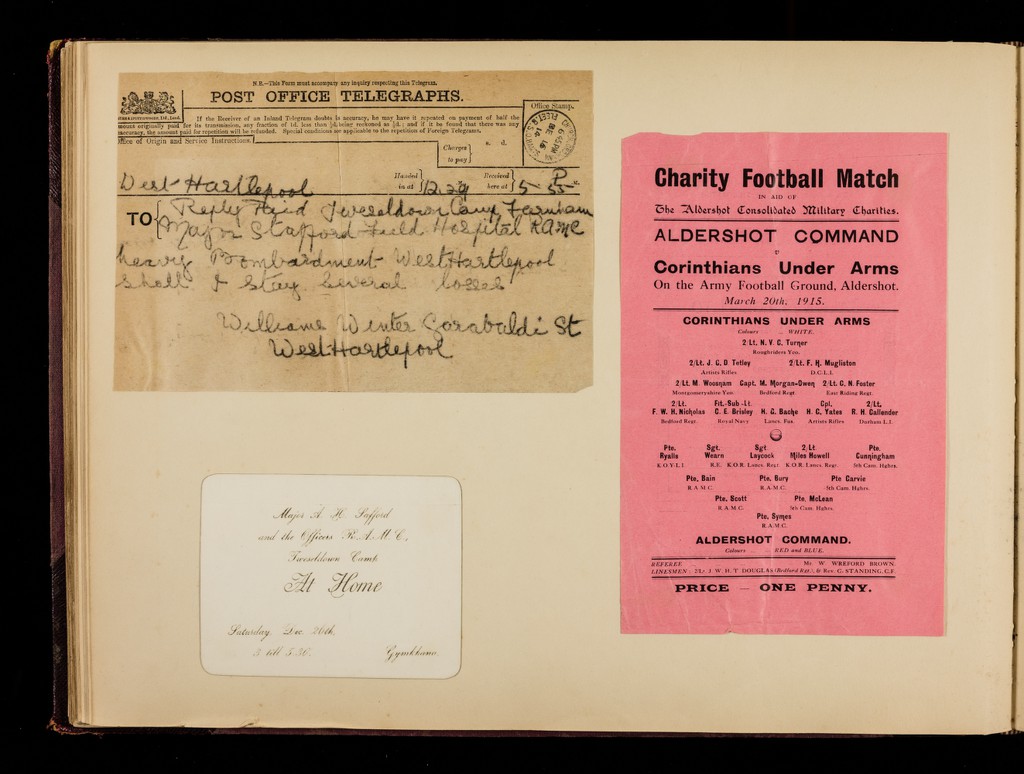 N.B.—This Form must accompany any inquiry respecting this Telegram.
POST OFFICE TELEGRAPHS.
If the Receiver of an Inland Telegram doubts its accuracy, he may have it repeated on payment of half the
amount originally paid for its transmission, any fraction of 1d. less than ½d. being reckoned as ½d.; and if it be found that there was any
inaccuracy, the amount paid for repetition will be refunded. Special conditions are applicable to the repetition of Foreign Telegrams.
Office Stamp.
Office of Origin and Service Instructions.
Charges to pay
s. d.
Handed in at
12.29
Received here at
5-55 P
West Hartlepool
TO
Reply Paid Tweseldown Camp Farnham
Major Stafford Field Hospital RAMC
heavy Bombardment West Hartlepool
shall I stay several losses
Williams Winter Garabaldi St
West Hartlepool
Major A. H. Safford
and the Officers R.A.M.C.,
Tweseldown Camp
At Home
Saturday, Dec. 26th,
3 till 5.30.
Gymkhana.
Charity Football Match
IN AID OF
The Aldershot Consolidated Military Charities.
ALDERSHOT COMMAND
v
Corinthians Under Arms
On the Army Football Ground, Aldershot.
March 20th, 1915.
CORINTHIANS UNDER ARMS
Colours .. .. WHITE.
2/Lt. N. V. C. Turner
Roughriders Yeo.
2/Lt. J. G. D Tetley 2/Lt. F. H. Mugliston
Artists Rifles D.C.L.I.
2/Lt. M. Woosnam Capt. M. Morgan-Owen 2/Lt. G. N. Foster
Montgomeryshire Yeo. Bedford Regt East Riding Regt.
2/Lt. Flt.-Sub-Lt. Cpl. 2/Lt.
F. W. H. Nicholas C. E. Brisley H. G. Bache H. G. Yates R. H. Callender
Bedford Regt. Royal Navy Lancs. Fus. Artists Rifles Durham L.I.
Pte. Sgt. Sgt 2/Lt Pte.
Ryalls Wearn Laycock Miles Howell Cunningham
K.O.Y.L.I. R.E. K.O.R. Lancs. Regt K.O.R. Lancs. Regt. 5th Cam. Hghrs.
Pte. Bain Pte. Bury Pte Garvie
R.A.M.C. R.A.M.C. 5th Cam. Hghrs.
Pte. Scott Pte. McLean
R.A.M.C. 5th Cam. Hghrs.
Pte. Symes
R.A.M.C.
ALDERSHOT COMMAND.
Colours .. .. RED and BLUE.
REFEREE Mr. W WREFORD BROWN.
LINESMEN: 2/Lt. J. W. H. T DOUGLAS (Bedford Regt.), & Rev. C. STANDING, C.F.
PRICE — ONE PENNY.